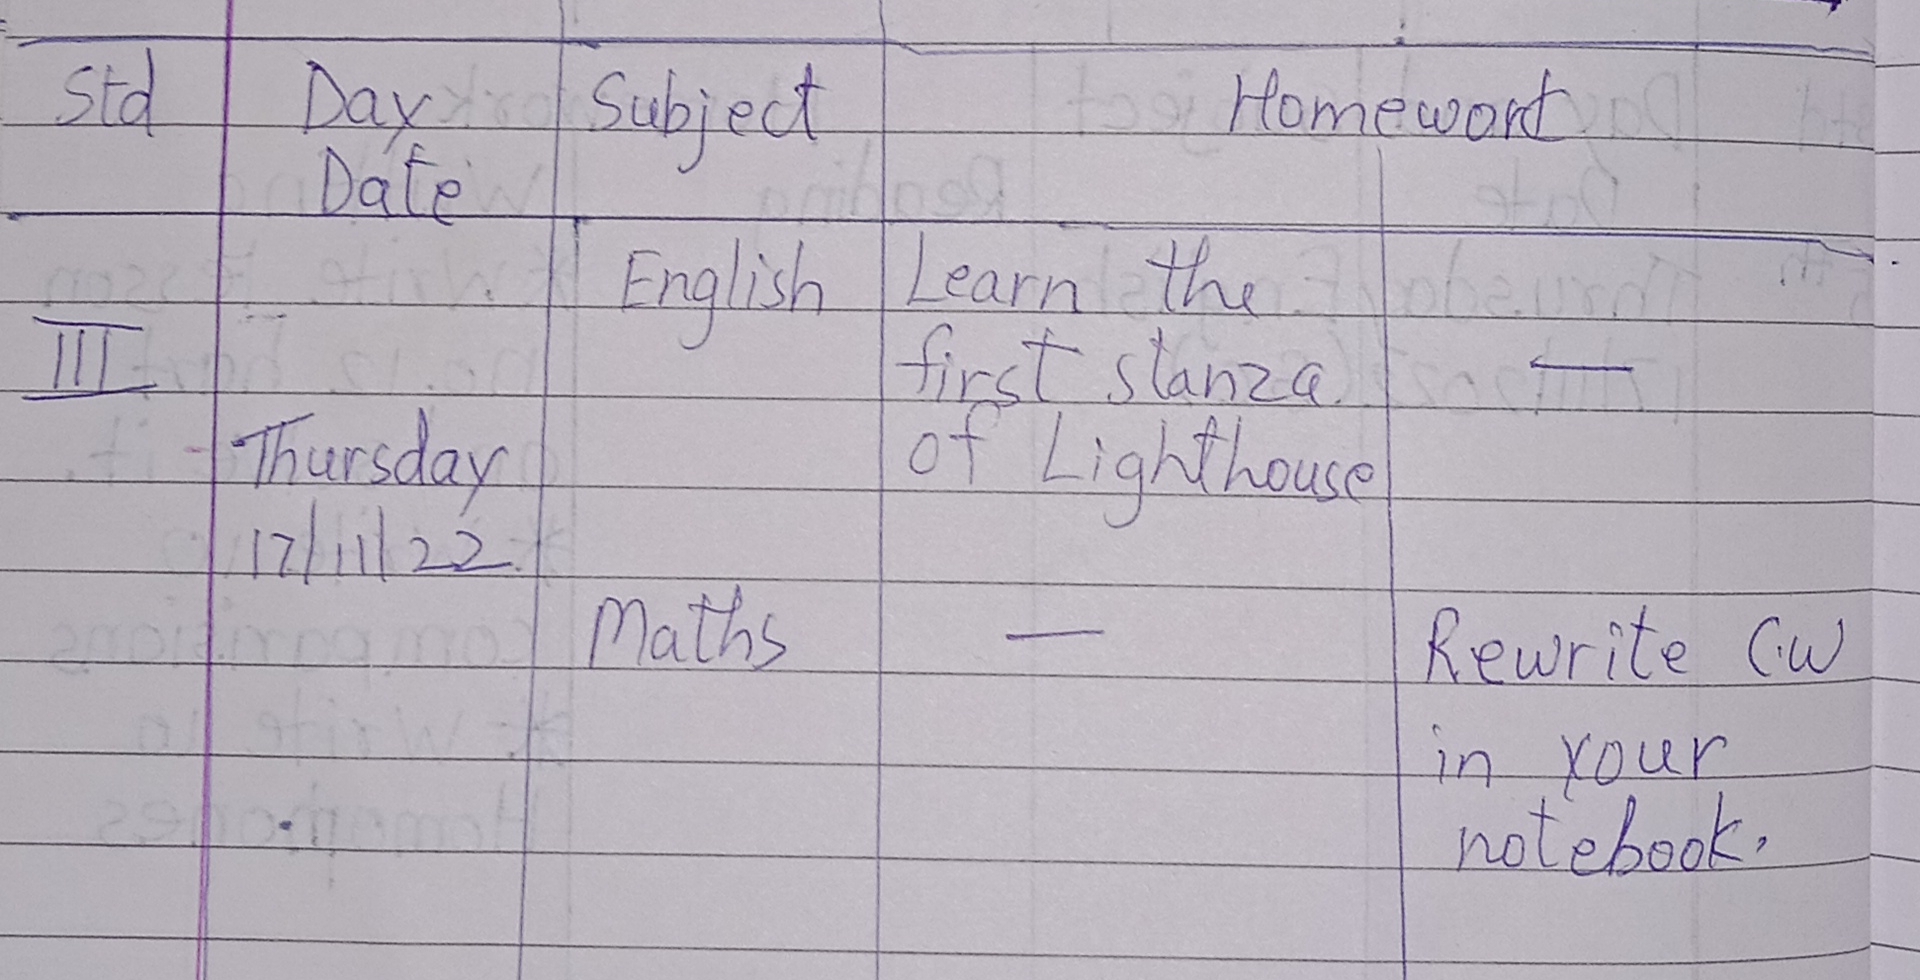 Std Day Subject Homework
Date
English Learn the
III first stanza —
Thursday of Lighthouse
17/11/22
Maths — Rewrite C.W
in your
notebook.